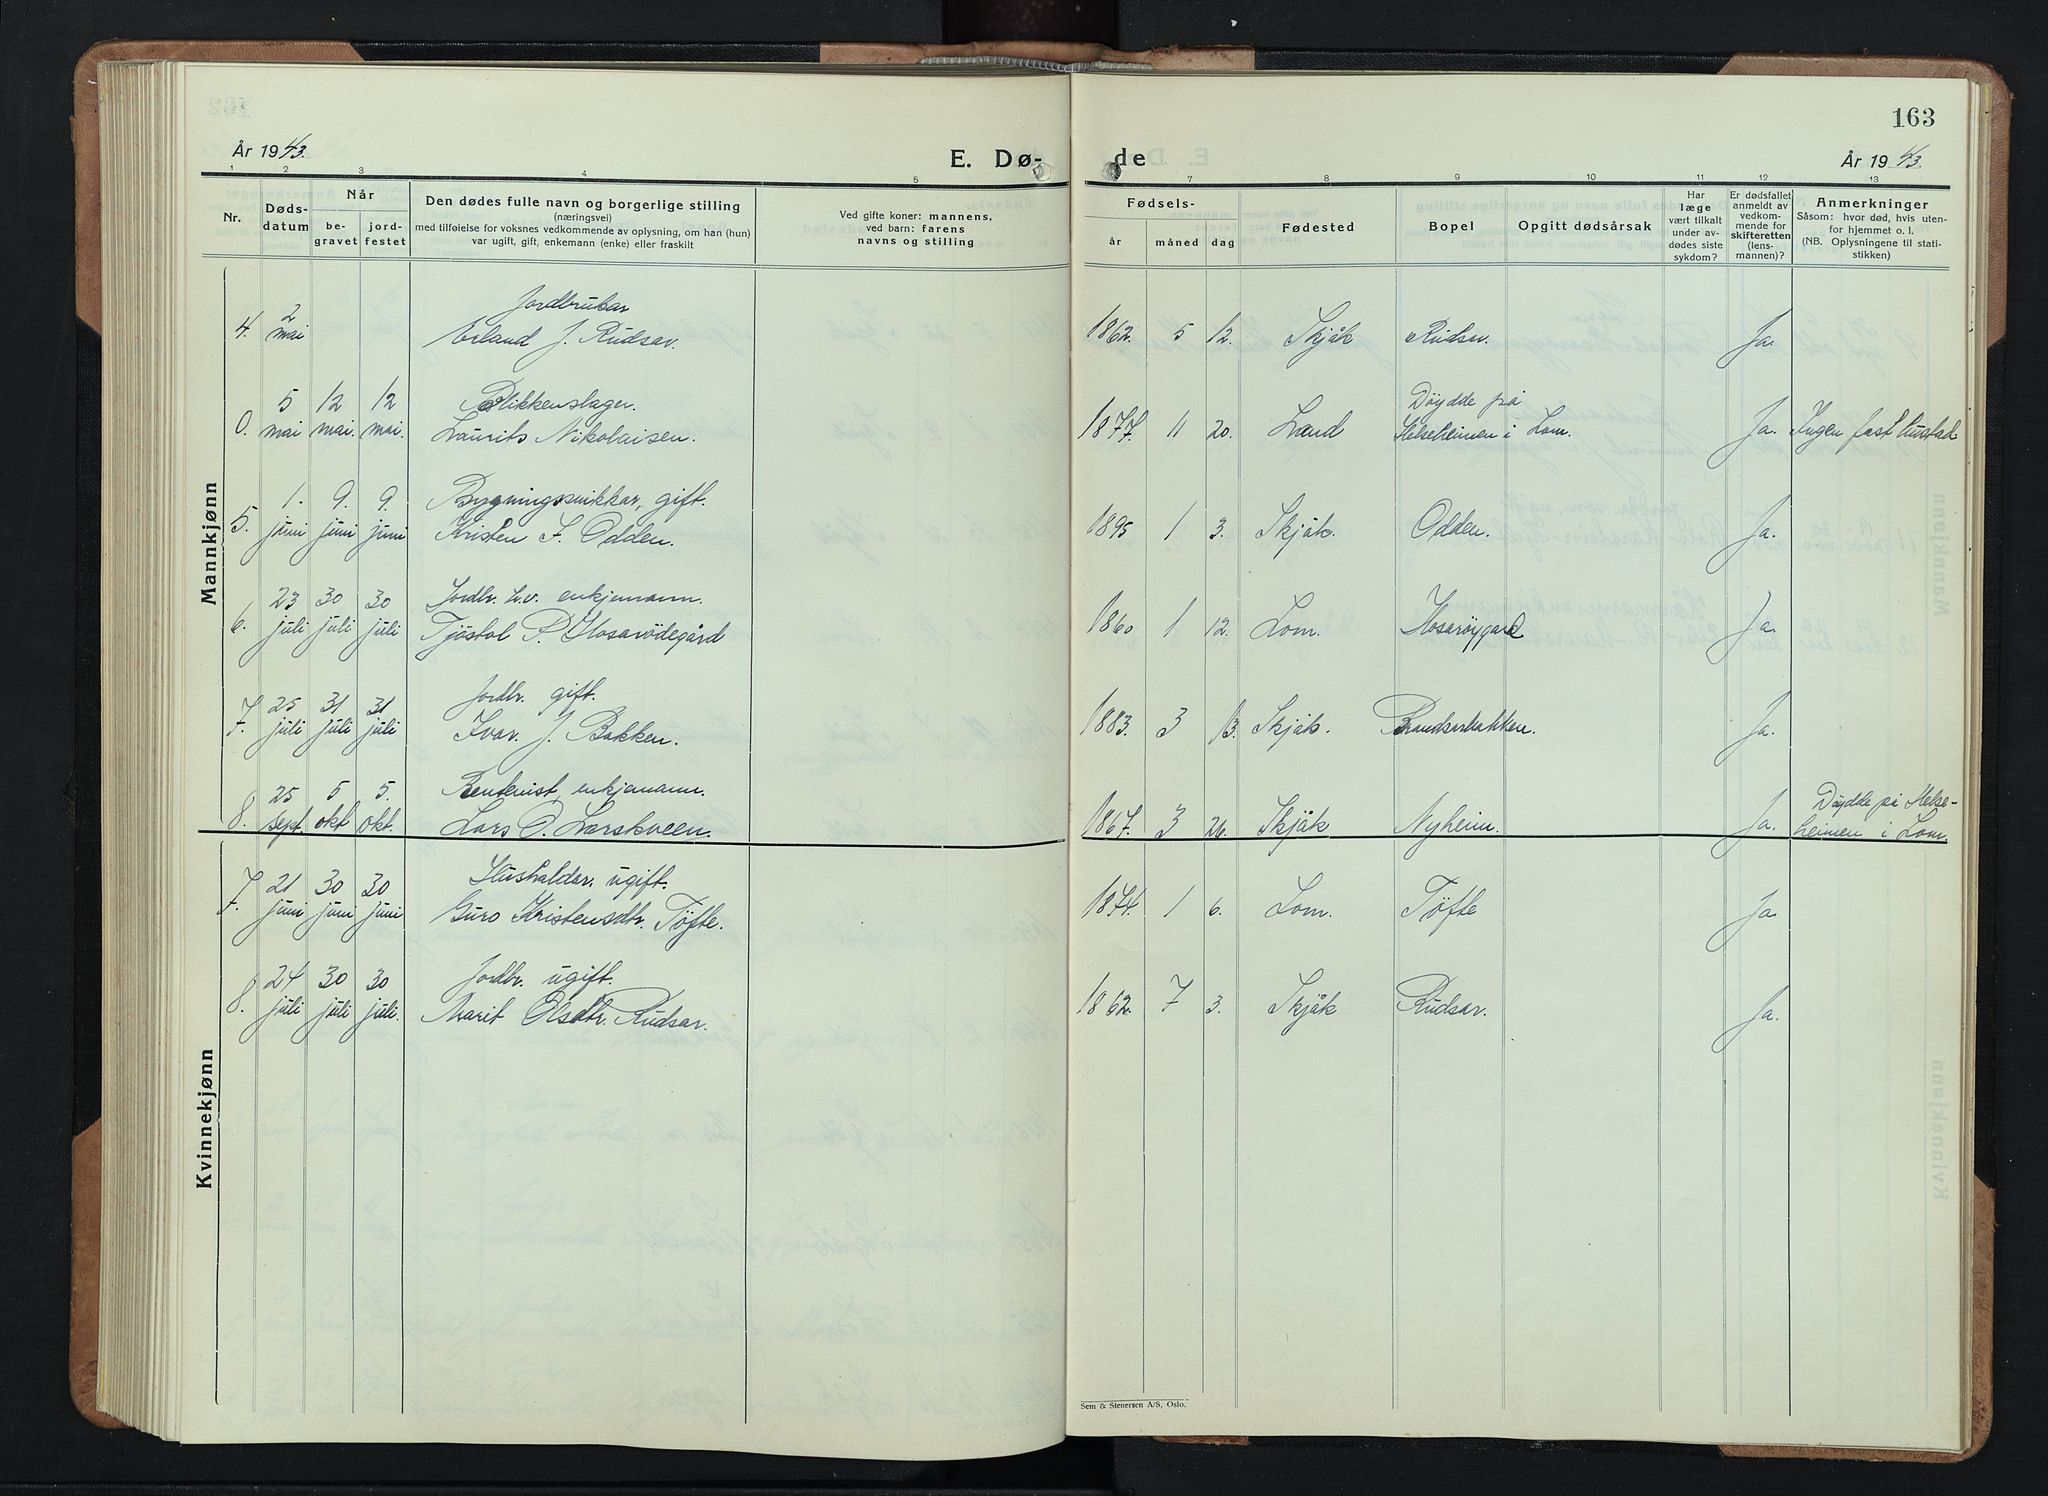 163
År 1943.
E. Dø-
de
År 1943.
1 2 3 4 5
7 8 9 10 11 12 13
Nr.
Døds-
datum
Når
be-
gravet
jord-
festet
Den dødes fulle navn og borgerlige stilling
(næringsvei)
med tilføielse for voksnes vedkommende av oplysning, om han (hun)
var ugift, gift, enkemann (enke) eller fraskilt
Ved gifte koner: mannens,
ved barn: farens
navns og stilling
Fødsels-
år måned dag
Fødested
Bopel
Opgitt dødsårsak
Har
læge
vært tilkalt
under av-
dødes siste
sykdom?
Er dødsfallet
anmeldt av
vedkom-
mende for
skifteretten
(lens-
mannen)?
Anmerkninger
Såsom: hvor død, hvis uten-
for hjemmet o. l.
(NB. Oplysningene til stati-
stikken)
Mannkjønn
2 Jordbrukar
4. mai Erland J. Rudsar. 1862. 5 12. Skjåk Rudsar. Ja.
5 12 12 Blikkenslager. Döydde på
0. mai mai. mai. Laurits Nikolaisen. 1877. 11 20. Land Helseheimen i Lom. Ja. Ingen fast bustad
1. 9. 9. Bygningssnikkar, gift.
5. juni juni juni Kristen F. Odden. 1895 1 3. Skjåk. Odden. Ja.
23 30 30 Jordbr. enkjemann.
6. juli juli juli Tjöstol P. Hosarödegård 1860 1 12. Lom. Hosarøygard Ja.
25 31 31 Jordbr. gift.
7. juli juli juli Ivar J. Bakken. 1883. 3 13. Skjåk. Ja.
25 5 5. Rentenist, enkjemann. Döydde på Helse-
8. sept. okt okt. Lars O. Larskveen. 1867. 3 26. Skjåk Nyheim. Ja. heimen i Lom.
Kvinnekjønn
21 30 30 Hushaldar. ugift.
7. juni juni juni Guro Kristensdtr. Töfte. 1874. 1 6. Lom. Töfte Ja.
24 30 30 Jordbr. ugift.
8. juli juli juli. Marit Olsdtr. Rudsar. 1862. 7 3. Skjåk Rudsar. Ja.
Sem & Stenersen A/S, Oslo.